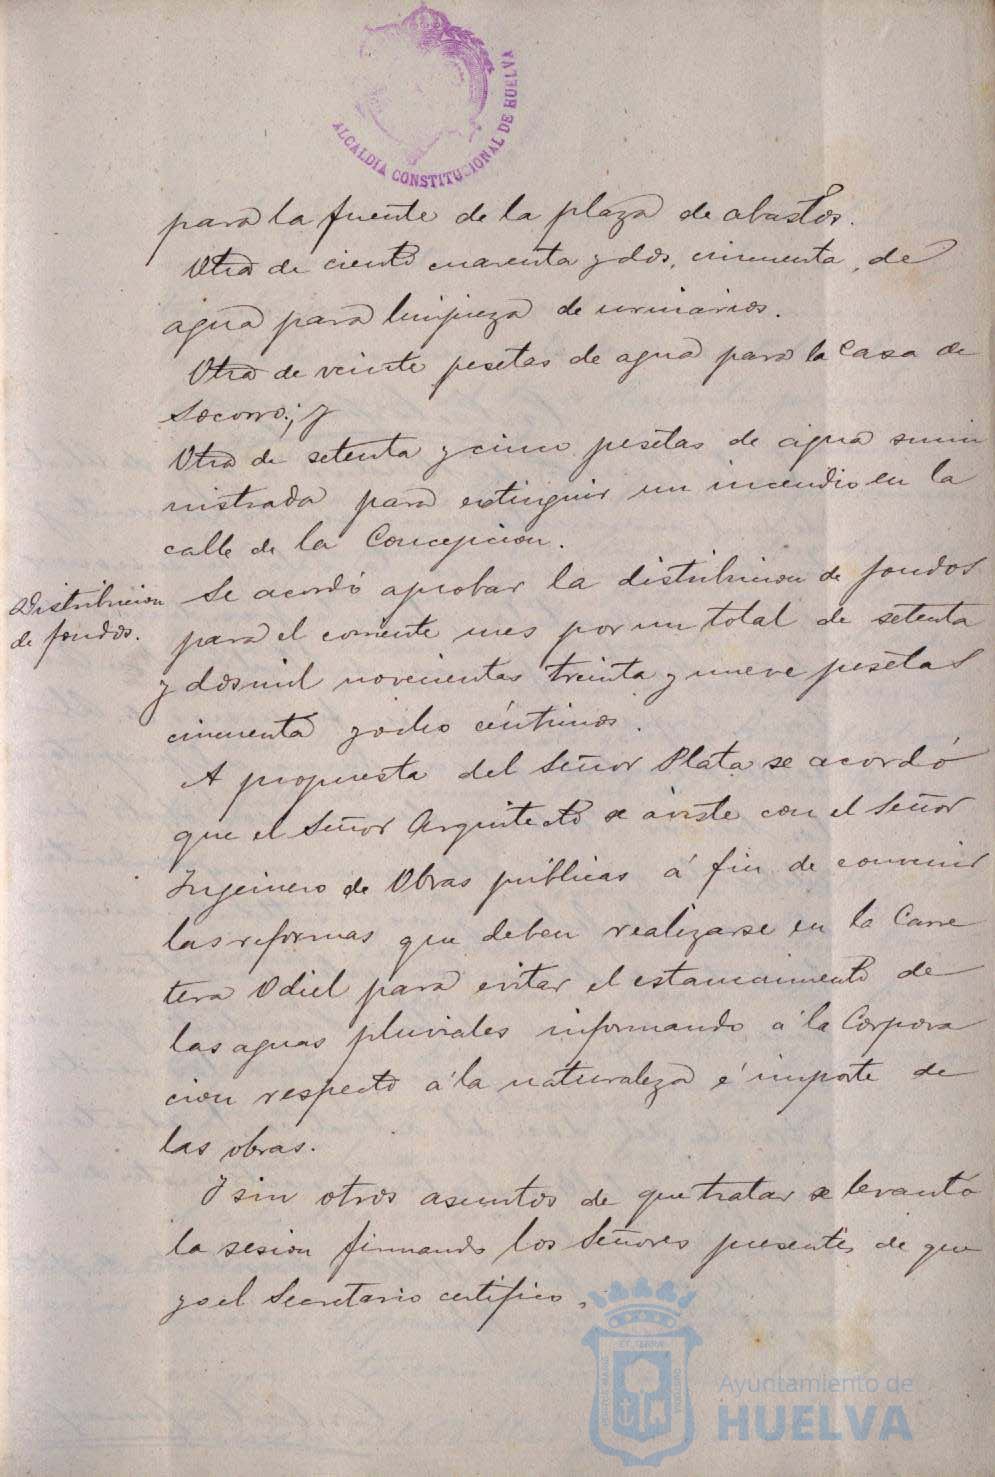 ALCALDIA CONSTITUCIONAL DE HUELVA
para la fuente de la plaza de abastos.
Otra de ciento cuarenta y dos, cincuenta, de
agua para limpieza de urinarios.
Otra de veinte pesetas de agua para la Casa de
Socorro; y
Otra de setenta y cinco pesetas de agua sumi
nistrada para extinguir un incendio en la
calle de la Concepcion.
Distribucion
de fondos.
Se acordó aprobar la distribucion de fondos
para el corriente mes por un total de setenta
y dos mil novecientas treinta y nueve pesetas
cincuenta y ocho céntimos.
A propuesta del Señor Plata se acordó
que el Señor Arquitecto se aviste con el Señor
Ingeniero de Obras públicas á fin de convenir
las reformas que deben realizarse en la Carre
tera Odiel para evitar el estancamiento de
las aguas pluviales informando á la Corpora
cion respecto á la naturaleza é importe de
las obras.
Y sin otros asuntos de que tratar se levantó
la sesion firmando los Señores presentes de que
yo el Secretario certifico.
Ayuntamiento de
HUELVA